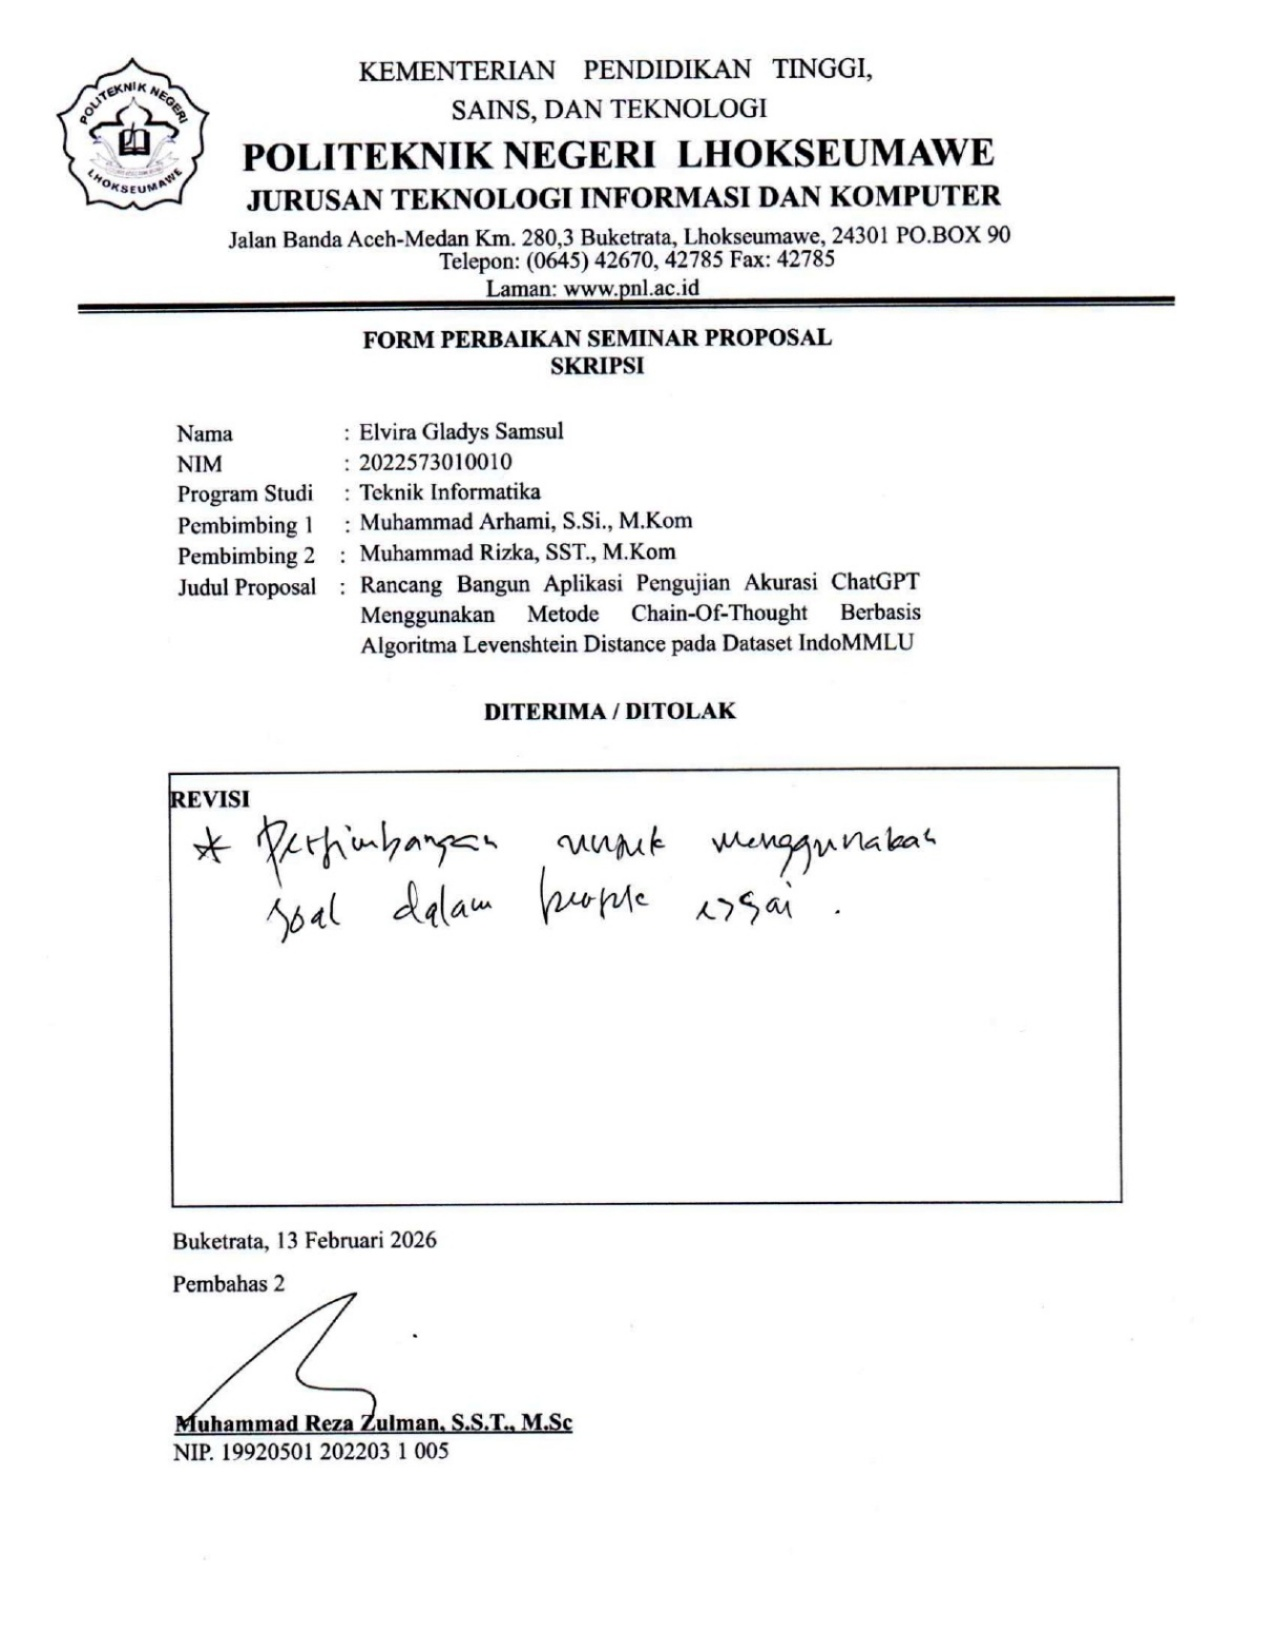 POLITEKNIK NEGERI
LHOKSEUMAWE
KEMENTERIAN PENDIDIKAN TINGGI,
SAINS, DAN TEKNOLOGI
POLITEKNIK NEGERI LHOKSEUMAWE
JURUSAN TEKNOLOGI INFORMASI DAN KOMPUTER
Jalan Banda Aceh-Medan Km. 280,3 Buketrata, Lhokseumawe, 24301 PO.BOX 90
Telepon: (0645) 42670, 42785 Fax: 42785
Laman: www.pnl.ac.id
FORM PERBAIKAN SEMINAR PROPOSAL
SKRIPSI
Nama : Elvira Gladys Samsul
NIM : 2022573010010
Program Studi : Teknik Informatika
Pembimbing 1 : Muhammad Arhami, S.Si., M.Kom
Pembimbing 2 : Muhammad Rizka, SST., M.Kom
Judul Proposal : Rancang Bangun Aplikasi Pengujian Akurasi ChatGPT
Menggunakan Metode Chain-Of-Thought Berbasis
Algoritma Levenshtein Distance pada Dataset IndoMMLU
DITERIMA / DITOLAK
REVISI
* Pertimbangan untuk menggunakan
soal dalam essai .
Buketrata, 13 Februari 2026
Pembahas 2
Muhammad Reza Zulman, S.S.T., M.Sc
NIP. 19920501 202203 1 005